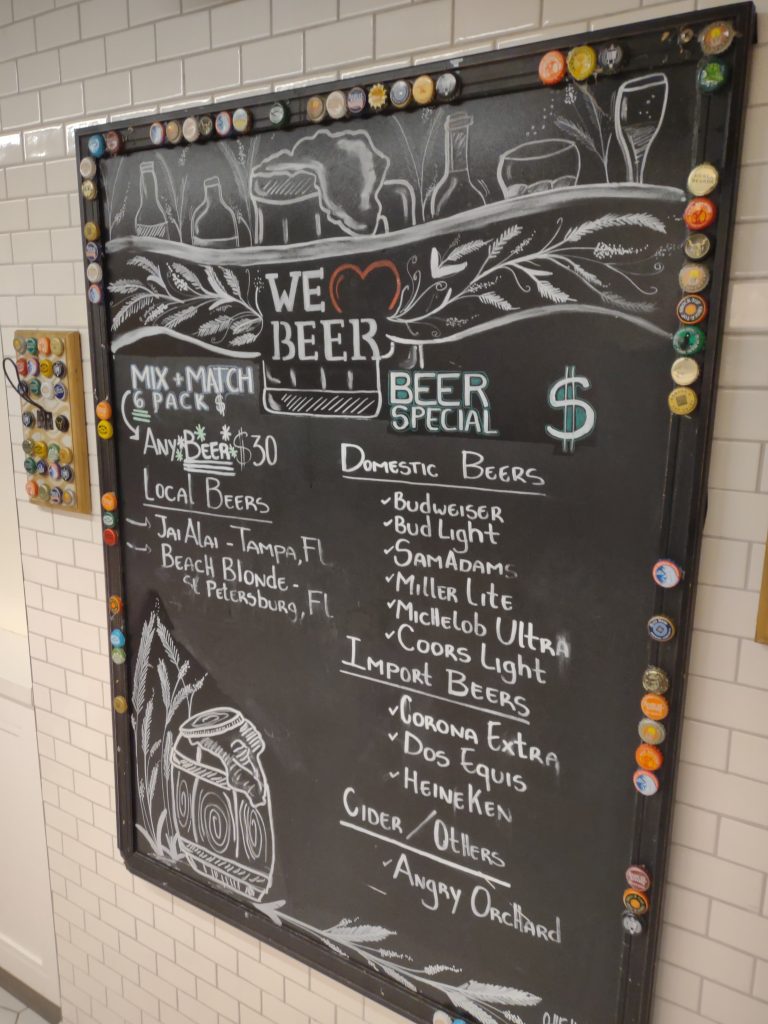 WE
BEER
MIX + MATCH
6 PACK $
ANY BEER $30
LOCAL BEERS
JAI ALAI - TAMPA, FL
BEACH BLONDE -
St. PETERSBURG, FL
BEER
SPECIAL
$
DOMESTIC BEERS
BUDWEISER
BUD LIGHT
SAM ADAMS
MILLER LITE
MICHELOB ULTRA
COORS LIGHT
IMPORT BEERS
CORONA EXTRA
DOS EQUIS
HEINEKEN
CIDER / OTHERS
ANGRY ORCHARD